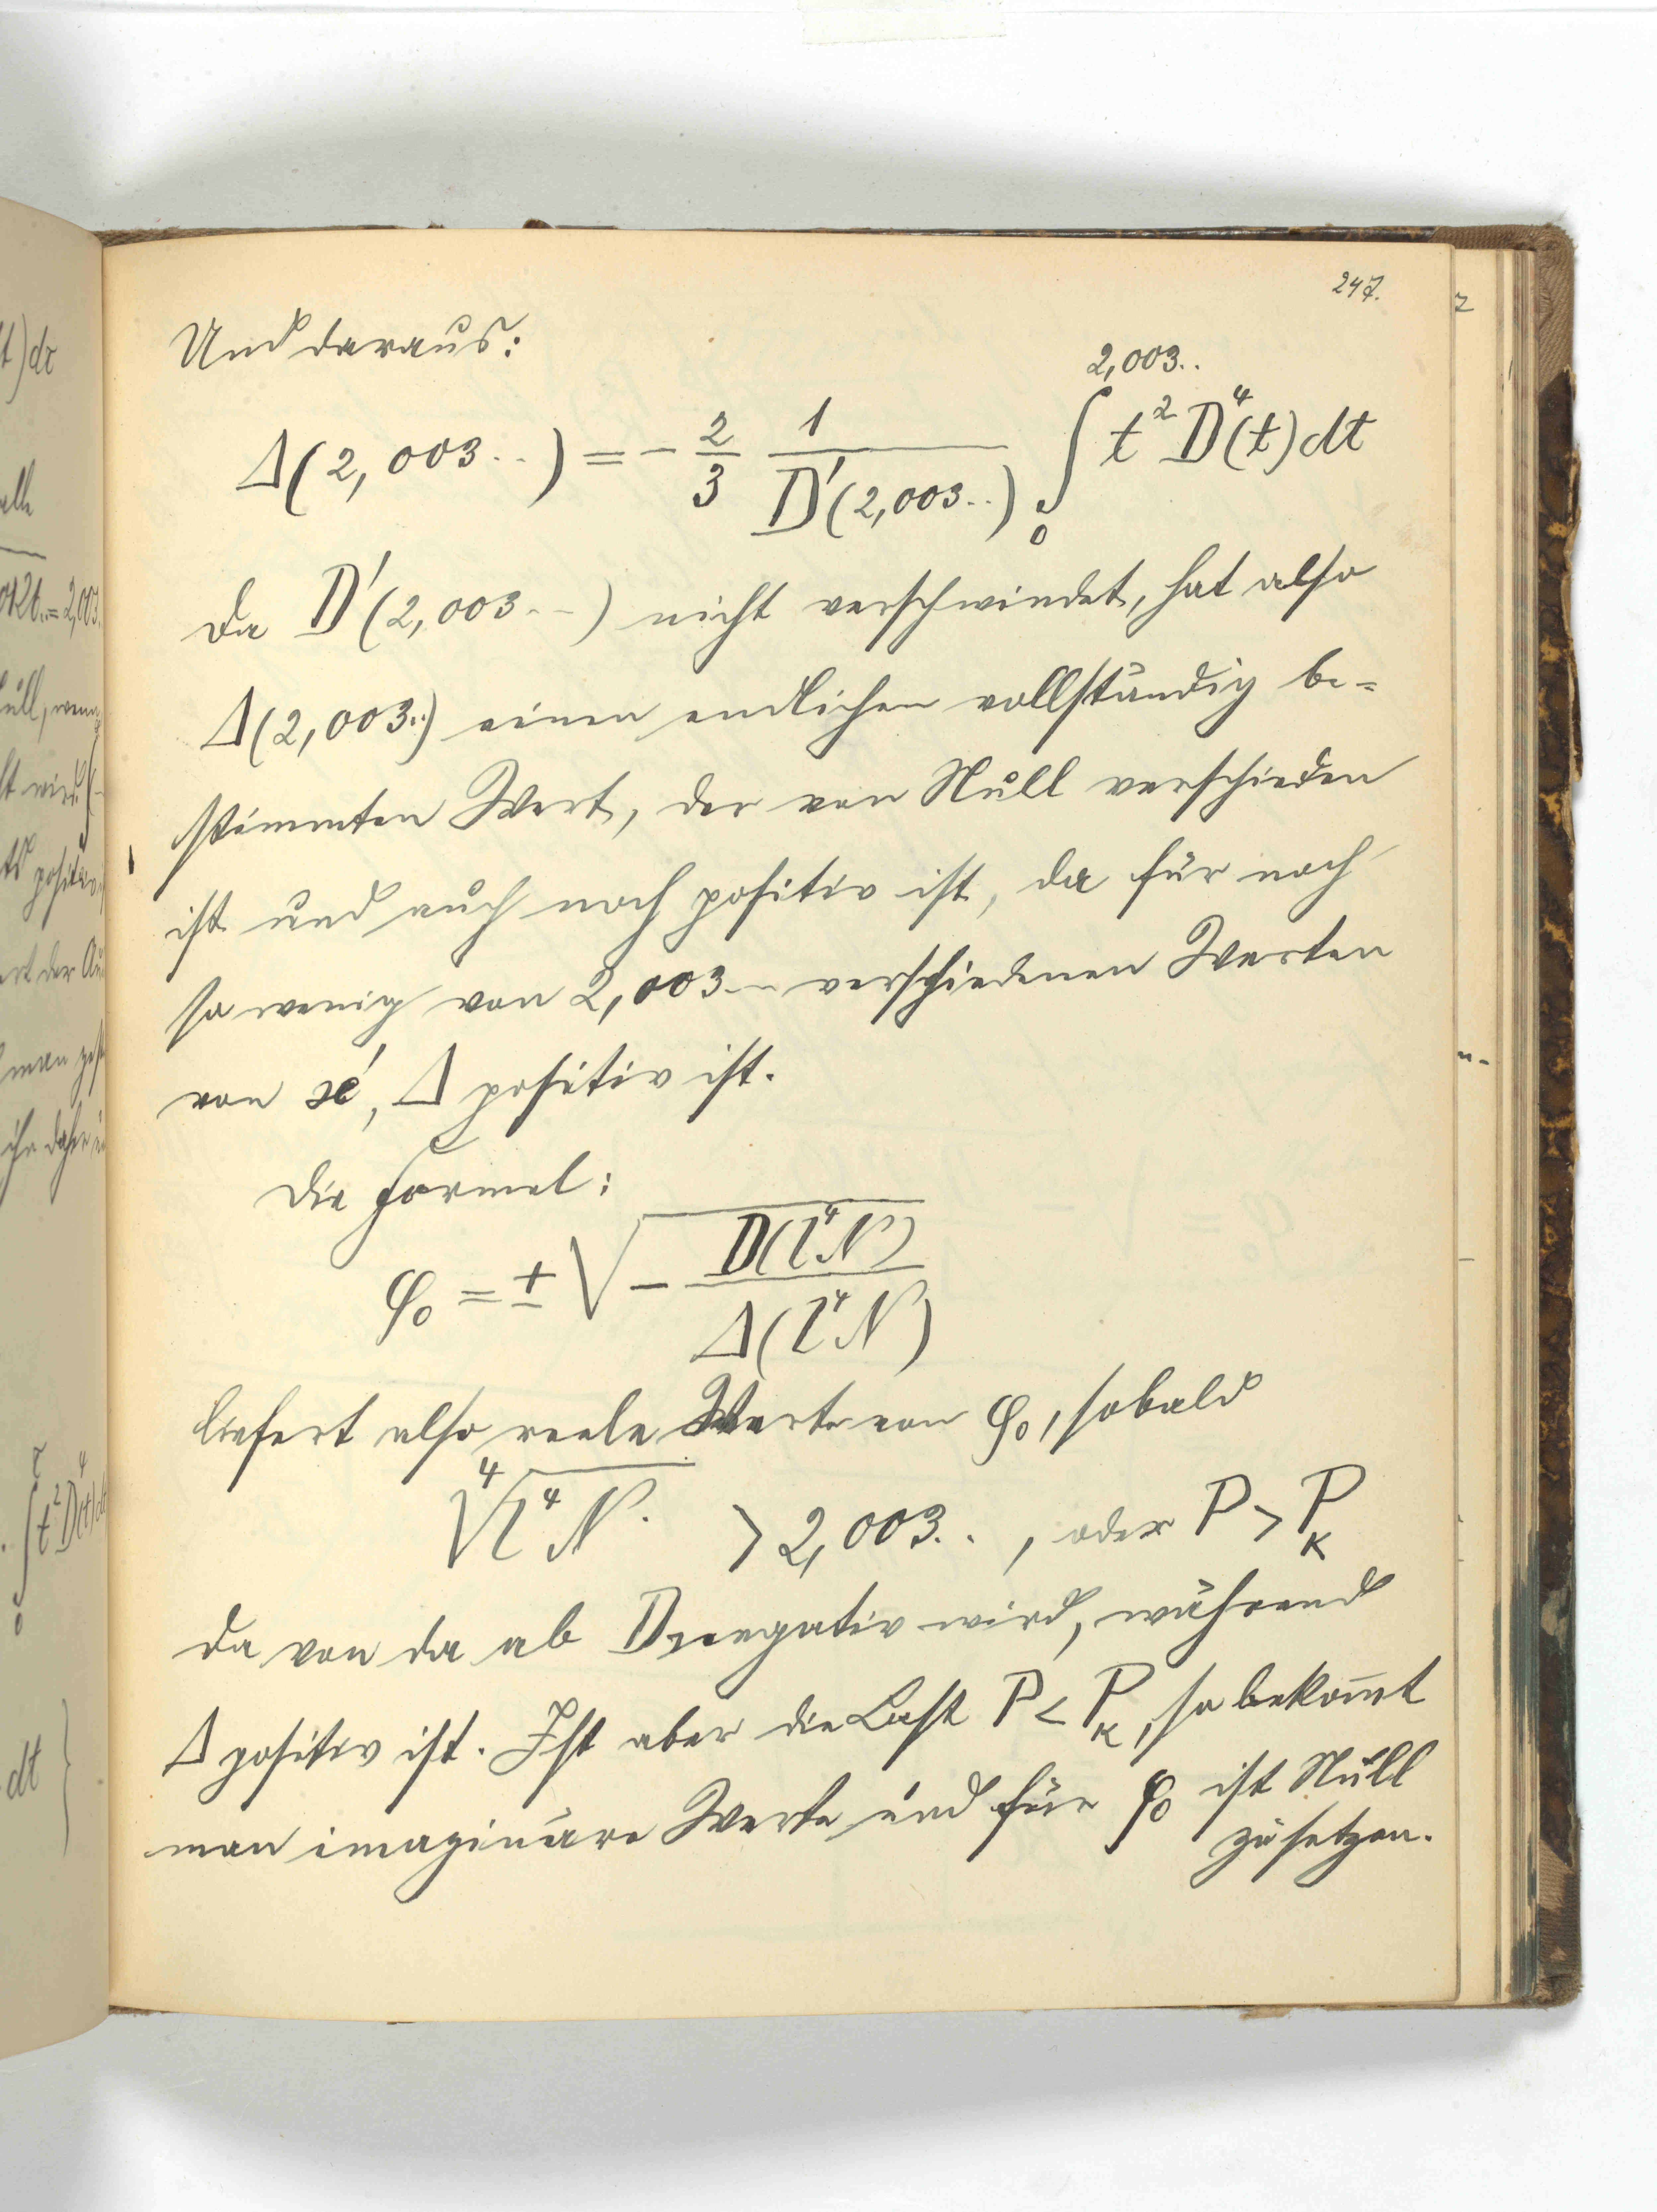 247.
Und daraus:
Δ(2,003..) = - 2/3 1/D'(2,003..) ∫₀^2,003.. t² D⁴(t) dt
Da D'(2,003..) nicht verschwindet, hat also
Δ(2,003..) einen endlichen vollständig be=
stimmten Wert, der von Null verschieden
ist und auch noch positiv ist, da für noch
so wenig von 2,003.. verschiedenen Werten
von æ', Δ positiv ist.
Die Formel:
φ₀ = ± √(- D(l⁴N)/Δ(l⁴N))
liefert also reele Werte von φ₀, sobald
⁴√(l⁴N) > 2,003.., oder P > P_K
da von da ab D negativ wird, während
Δ positiv ist. Ist aber die Last P < P_K, so bekom̅t
man imaginäre Werte und für φ₀ ist Null
zu setzen.